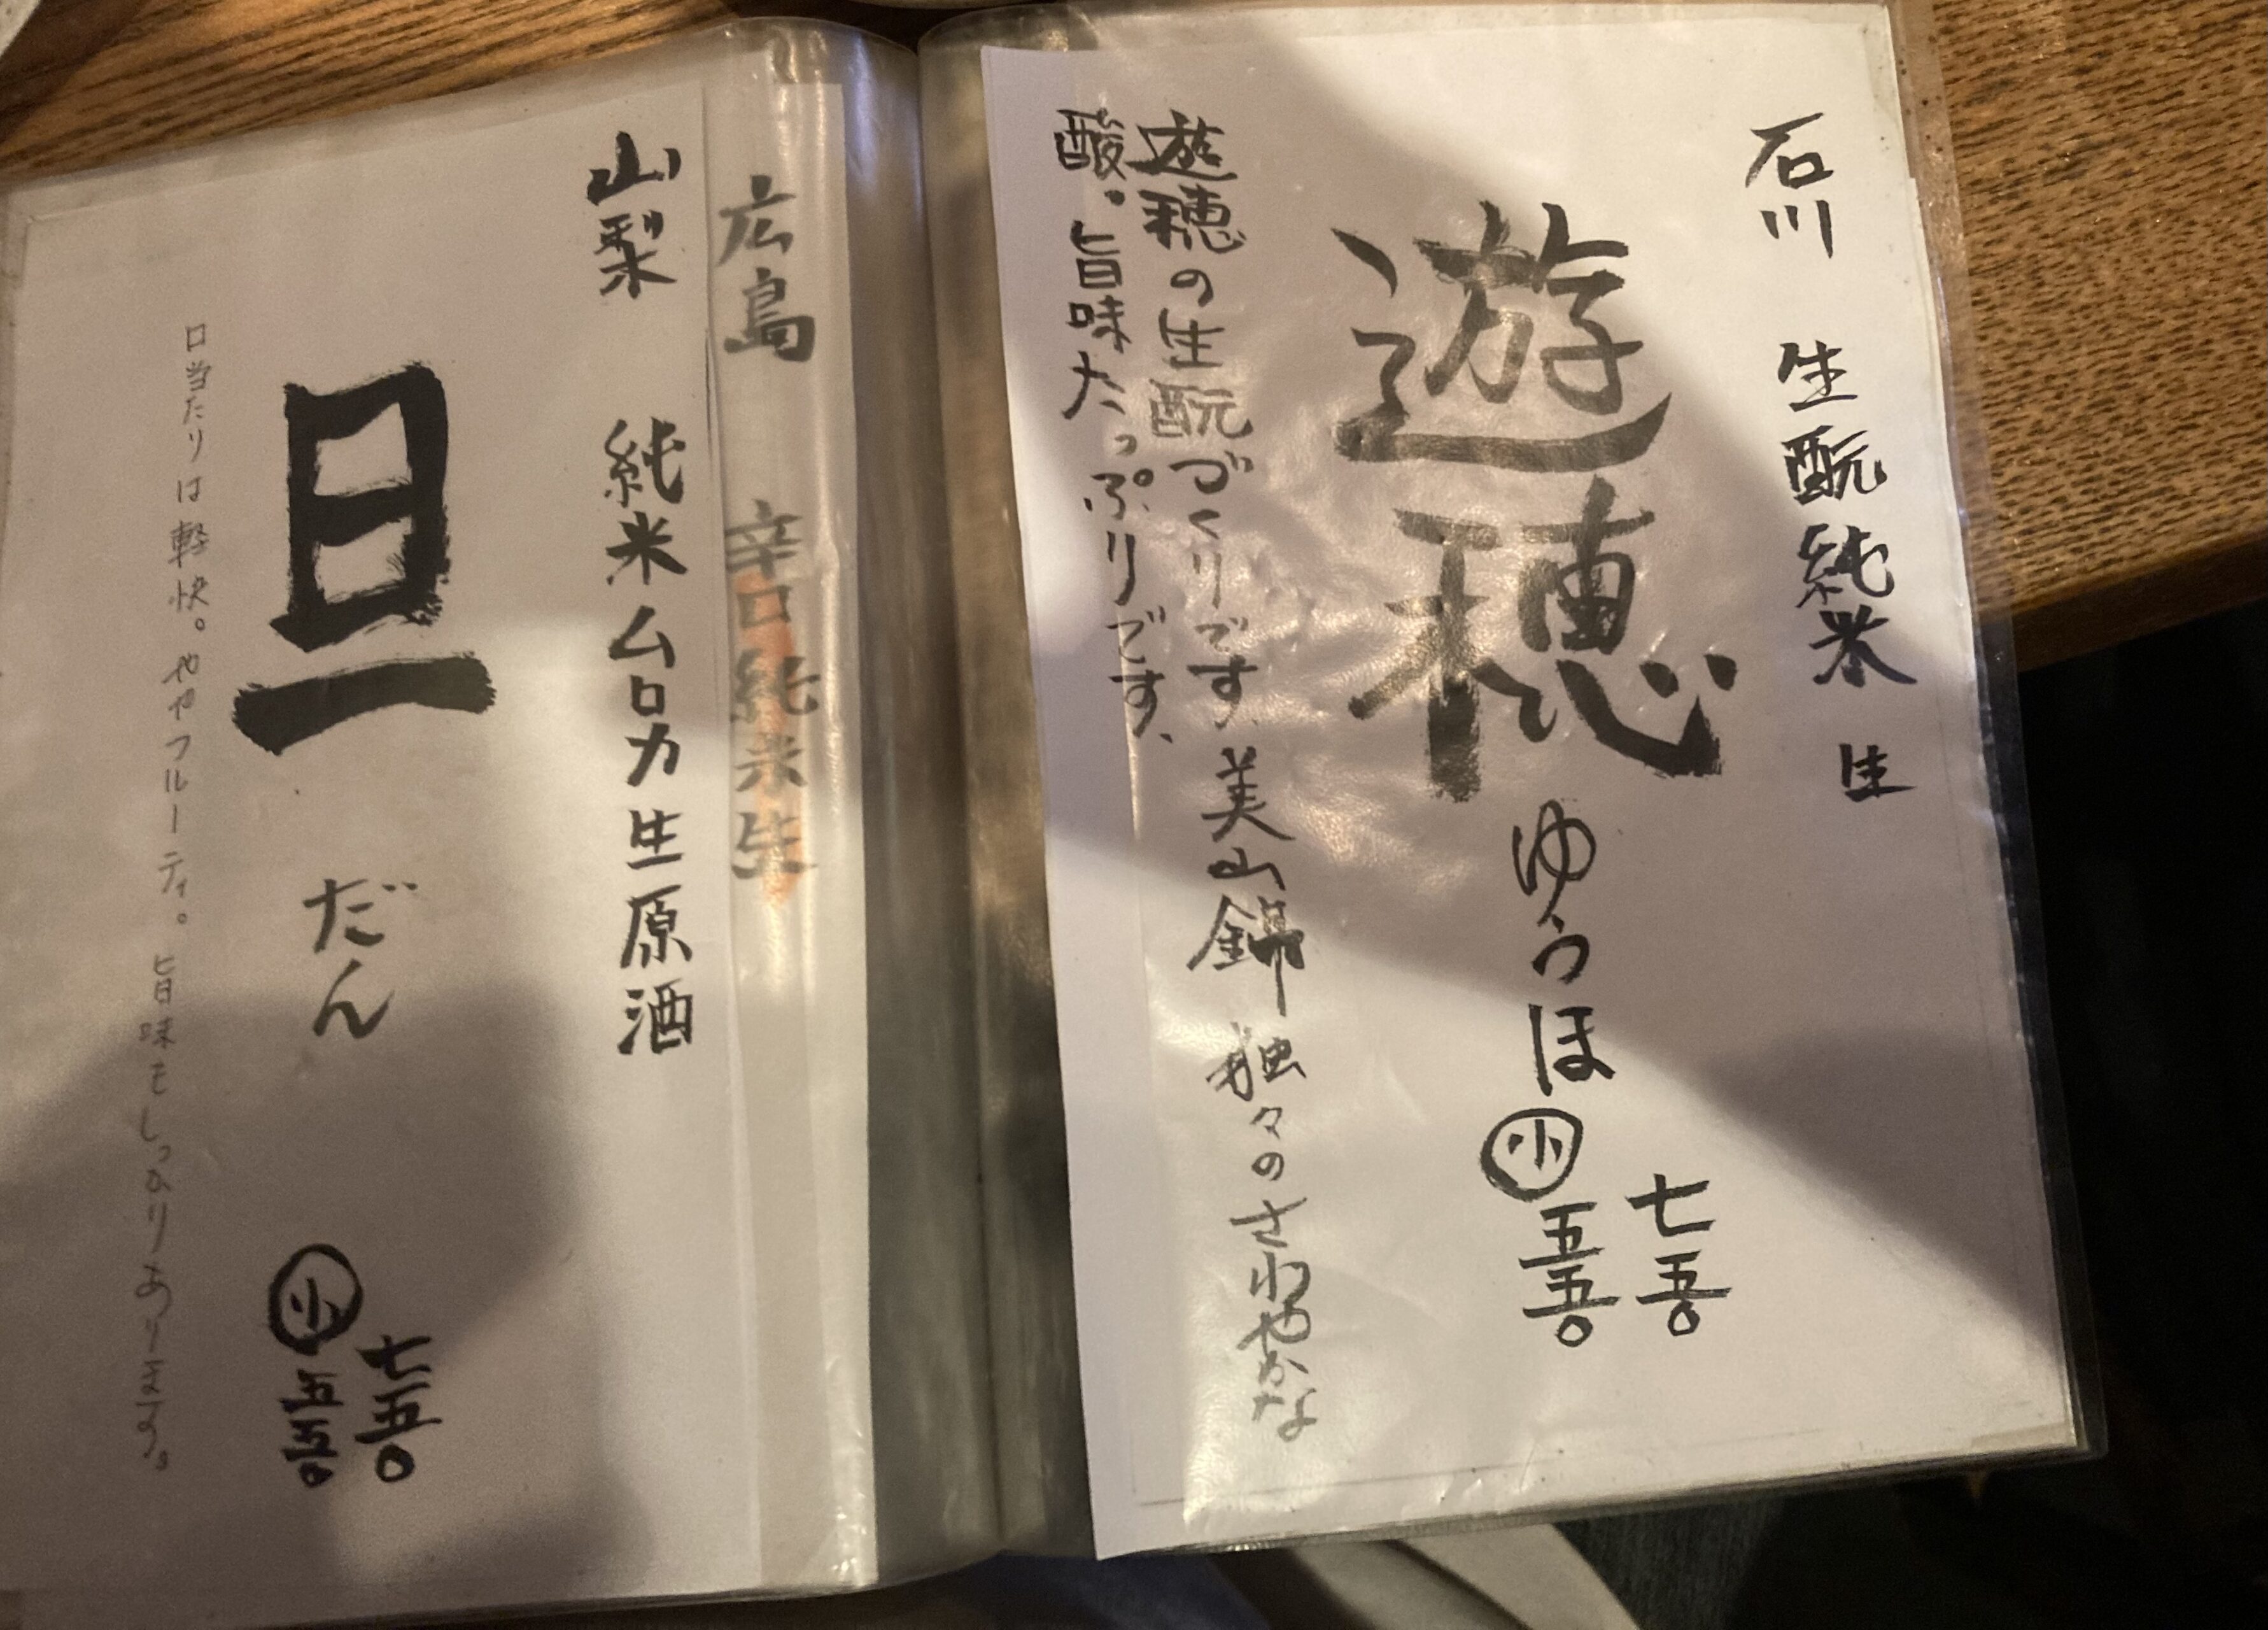 石川 生酛純米 生
遊穂 ゆうほ
七五〇
小 五五〇
遊穂の生酛づくりです、美山錦 独々のさわやかな
酸。旨味たっぷりです、
広島 辛口純米生
山梨 純米ムロカ生原酒
旦 だん
七五〇
小 五五〇
口当たりは軽快。ややフルーティ。旨味もしっかりあります。